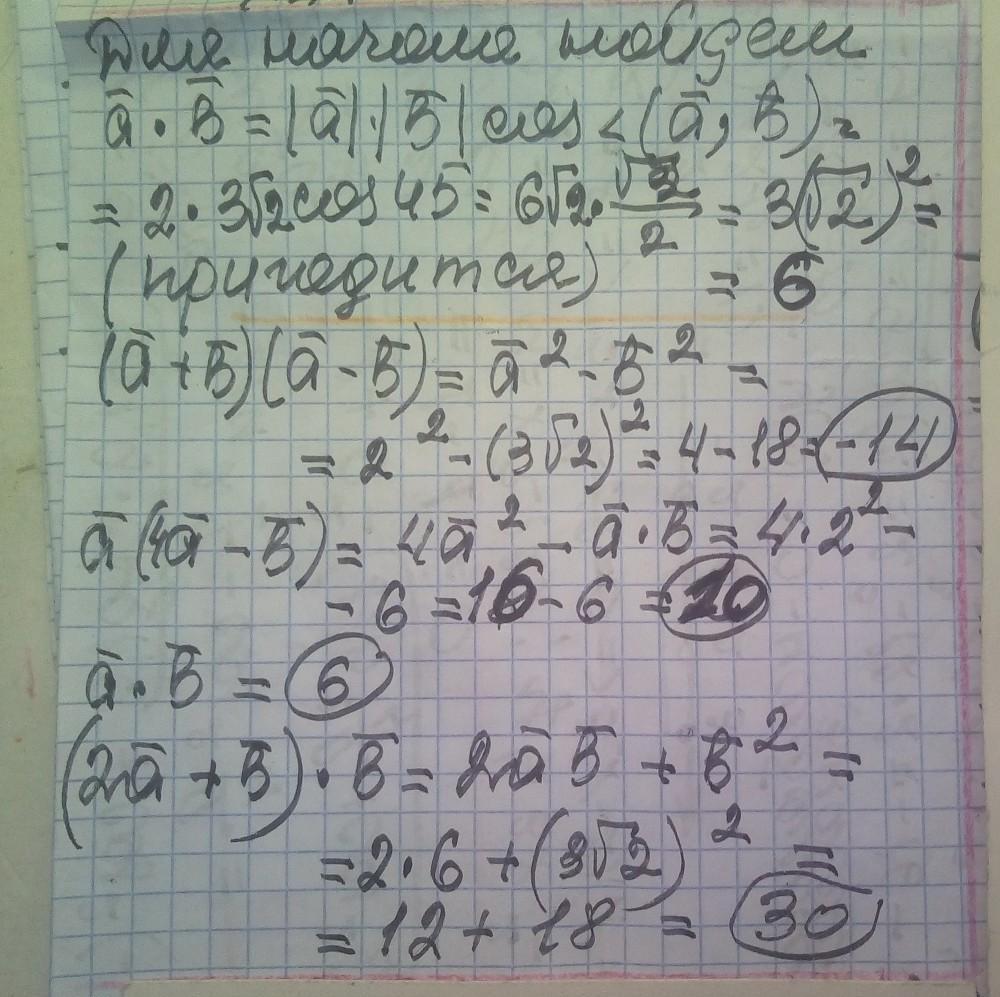 Для начала найдем
ā · b̄ = |ā|·|b̄| cos <(ā, b̄) =
= 2 · 3√2 cos 45 = 6√2 · √2/2 = 3(√2)² =
(пригодится) = 6
(ā + b̄)(ā - b̄) = ā² - b̄² =
= 2² - (3√2)² = 4 - 18 = -14
ā(4ā - b̄) = 4ā² - ā·b̄ = 4·2² -
- 6 = 16 - 6 = 10
ā · b̄ = 6
(2ā + b̄) · b̄ = 2ā b̄ + b̄² =
= 2·6 + (3√2)² =
= 12 + 18 = 30